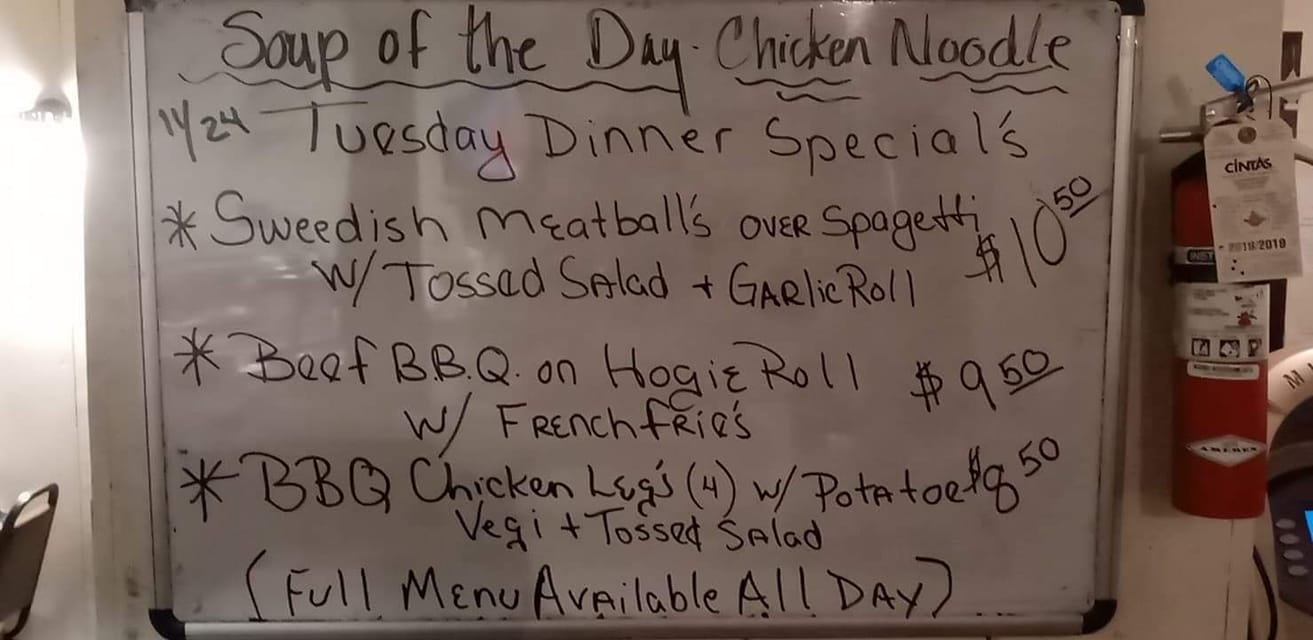 Soup of the Day - Chicken Noodle
11/24 Tuesday Dinner Special's
* Sweedish Meatball's OVER Spagetti $10 50
W/ Tossed Salad + GARlic Roll
* Beef B.B.Q. on HogiE Roll $9 50
W/ FRENch fRiE's
* BBQ Chicken LEg's (4) w/ PotAtoe $8 50
Vegi + Tossed SAlad
(Full MENU AvAilable All DAY)
CINTAS
2018/2019
INST
AMEREX